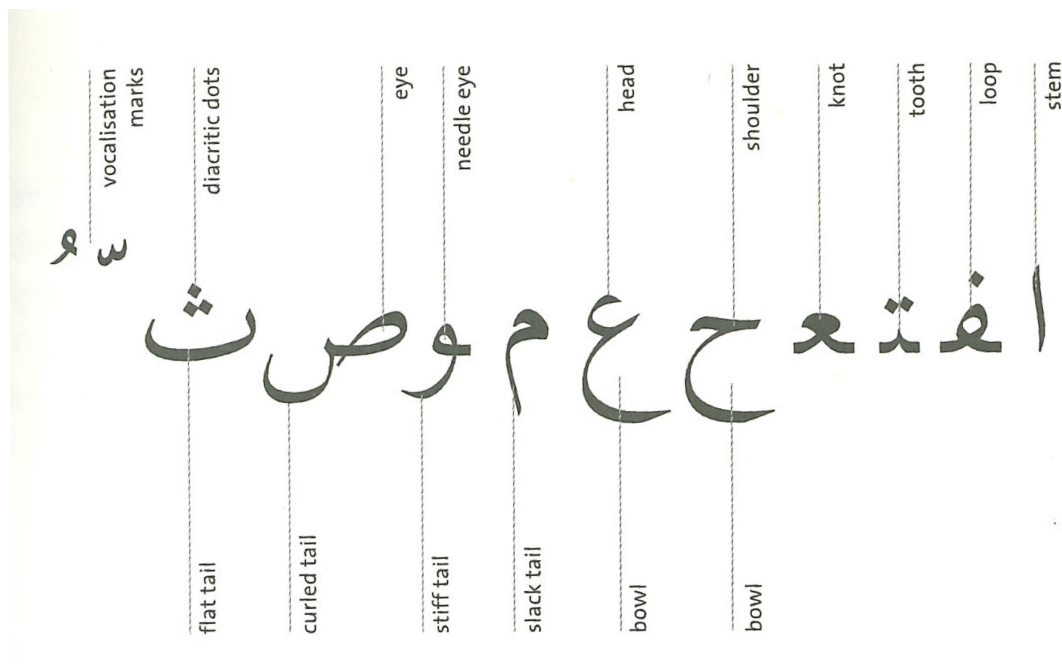 vocalisation
marks
diacritic dots
eye
needle eye
head
shoulder
knot
tooth
loop
stem
ُ ّ ث ص و م ع ح ـعـ ـتـ ـفـ ا
flat tail
curled tail
stiff tail
slack tail
bowl
bowl